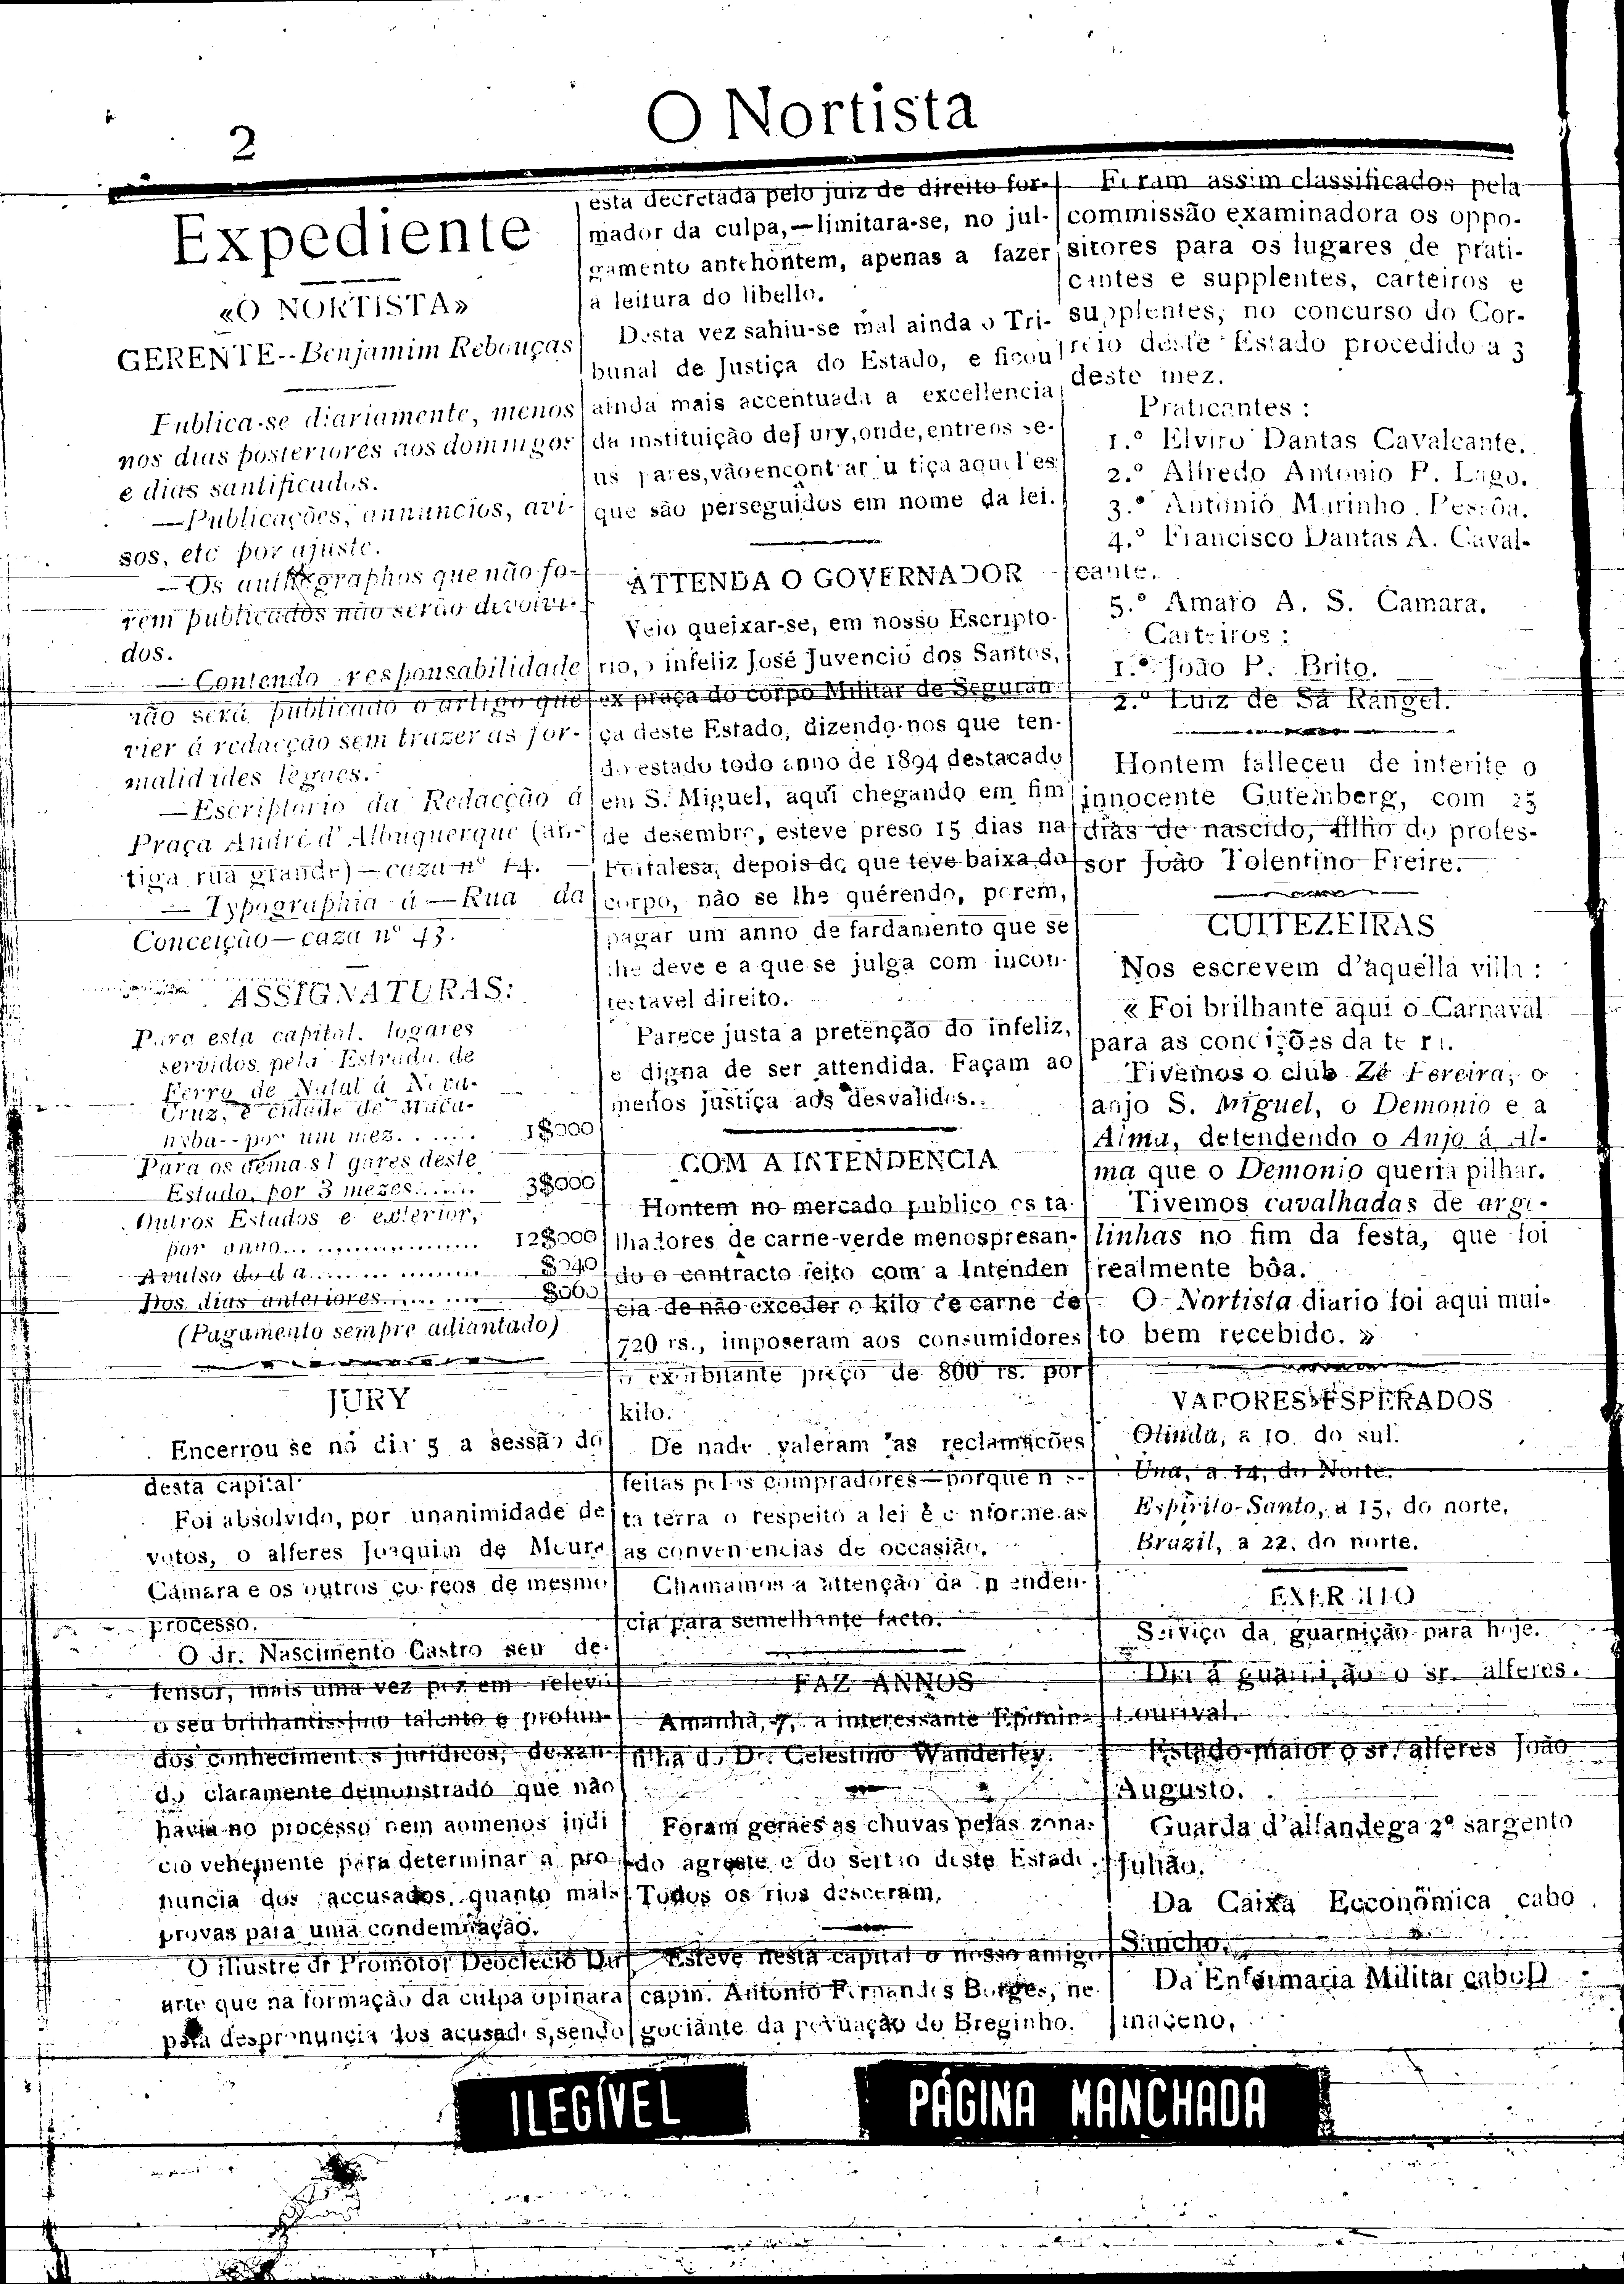 2
O Nortista
Expediente
«O NORTISTA»
GERENTE--Benjamim Rebouças
Publica-se diariamente, menos
nos dias posteriores aos domingos
e dias santificados.
—Publicações, annuncios, avi-
sos, etc por ajuste.
—Os authographos que não fo-
rem publicados não serão devolvi-
dos.
—Contendo responsabilidade
não será publicado o artigo que
vier á redacção sem trazer as for-
malidades legaes.
—Escriptorio da Redacção á
Praça André d'Albuquerque (an-
tiga rua grande)—caza nº 14.
—Typographia á—Rua da
Conceição—caza nº 43.
ASSIGNATURAS:
Para esta capital, logares
servidos pela Estrada de
Ferro de Natal á Nova-
Cruz, e cidade de Maca-
hyba--por um mez...... 1$000
Para os demais lgares deste
Estado, por 3 mezes...... 3$000
Outros Estados e exterior,
por anno.................. 12$000
Avulso do dia............... $040
Dos dias anteriores......... $060
(Pagamento sempre adiantado)
JURY
Encerrou se no dia 5 a sessão do
desta capital
Foi absolvido, por unanimidade de
votos, o alferes Joaquim de Moura
Camara e os outros co-reos de mesmo
processo.
O dr. Nascimento Castro seu de-
fensor, mais uma vez poz em relevo
o seu brilhantissimo talento e profun-
dos conhecimentos juridicos, deixan
do claramente demonstrado que não
havia no processo nem aomenos indi
cio vehemente para determinar a pro-
nuncia dos accusados, quanto mais
provas para uma condemnação.
O illustre dr Promotor Deoclecio Du
arte que na formação da culpa opinara
pela despronuncia dos acusados, sendo
esta decretada pelo juiz de direito for-
mador da culpa,—limitara-se, no jul-
gamento antehontem, apenas a fazer
a leitura do libello.
Desta vez sahiu-se mal ainda o Tri-
bunal de Justiça do Estado, e ficou
ainda mais accentuada a excellencia
da instituição deJury,onde,entreos se-
us pares,vãoencontrar justiça aquelles
que são perseguidos em nome da lei.
ATTENDA O GOVERNADOR
Veio queixar-se, em nosso Escripto-
rio,o infeliz José Juvencio dos Santos,
ex praça do corpo Militar de Seguran
ça deste Estado, dizendo-nos que ten-
do estado todo anno de 1894 destacado
em S. Miguel, aqui chegando em fim
de desembro, esteve preso 15 dias na
Fortalesa, depois do que teve baixa do
corpo, não se lhe quérendo, porem,
pagar um anno de fardamento que se
lhe deve e a que se julga com incon-
testavel direito.
Parece justa a pretenção do infeliz,
e digna de ser attendida. Façam ao
menos justiça aos desvalidos..
COM A INTENDENCIA
Hontem no mercado publico os ta-
lhadores de carne-verde menospresan-
do o contracto feito com a Intenden
cia de não exceder o kilo de carne de
720 rs., imposeram aos consumidores
o exorbitante preço de 800 rs. por
kilo.
De nade valeram as reclamações
feitas pelos compradores—porque nes-
ta terra o respeito a lei é conforme as
as conveniencias de occasião.
Chamamos a attenção da Intenden-
cia para semelhante facto.
FAZ ANNOS
Amanhã, 7, a interessante
filha do Dr. Celestino Wanderley.
Foram geraes as chuvas pelas zonas
do agreste e do sertão deste Estado.
Todos os rios desceram.
Esteve nesta capital o nosso amigo
capm. Antonio Fernandes Borges, ne-
gociante da povuação do Breginho.
Foram assim classificados pela
commissão examinadora os oppo-
sitores para os lugares de prati-
cantes e supplentes, carteiros e
supplentes, no concurso do Cor-
reio deste Estado procedido a 3
deste mez.
Praticantes:
1.º Elviro Dantas Cavalcante.
2.º Alfredo Antonio P. Lago.
3.º Antonio Marinho Pessôa.
4.º Francisco Dantas A. Caval-
cante.
5.º Amaro A. S. Camara.
Carteiros:
1.º João P. Brito.
2.º Luiz de Sá Rangel.
Hontem falleceu de interite o
innocente Gutemberg, com 25
dias de nascido, filho do profes-
sor João Tolentino Freire.
CUITEZEIRAS
Nos escrevem d'aquella villa:
« Foi brilhante aqui o Carnaval
para as condições da terra.
Tivemos o club Zé Pereira, o
anjo S. Miguel, o Demonio e a
Alma, defendendo o Anjo á Al-
ma que o Demonio queria pilhar.
Tivemos cavalhadas de argo-
linhas no fim da festa, que foi
realmente bôa.
O Nortista diario foi aqui mui-
to bem recebido. »
VAPORES ESPERADOS
Olinda, a 10. do sul.
Una, a 14, do Norte.
Espirito-Santo, a 15, do norte.
Brazil, a 22. do norte.
EXERCITO
Serviço da guarnição para hoje.
Dia á guarnição o sr. alferes
Lourival.
Estado-maior o sr. alferes João
Augusto.
Guarda d'alfandega 2º sargento
Julião.
Da Caixa Ecconômica cabo
Sancho.
Da Enfermaria Militar cabo D
maceno.
ILEGÍVEL
PÁGINA MANCHADA